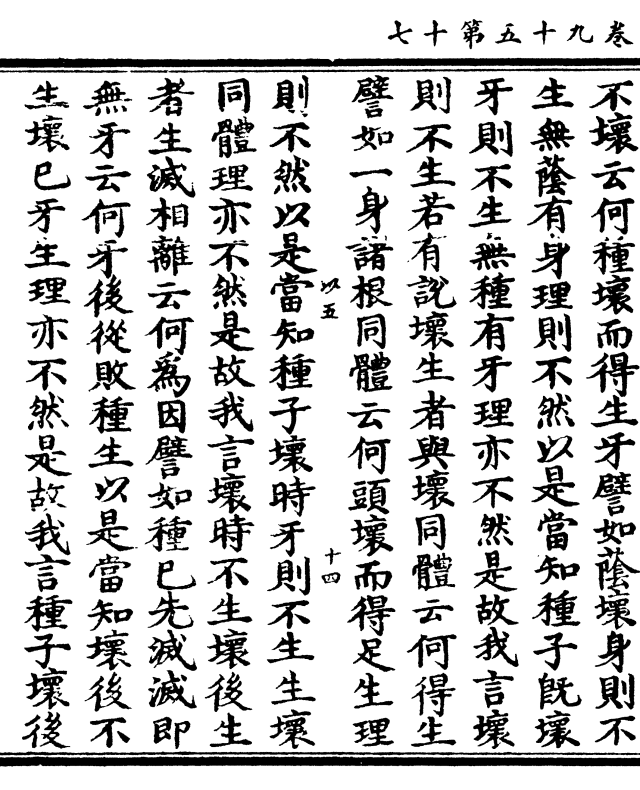 卷九十五第十七
不壞云何種壞而得生牙譬如蔭壞身則不
生無蔭有身理則不然以是當知種子旣壞
牙則不生無種有牙理亦不然是故我言壞
則不生若有說壞生者與壞同體云何得生
譬如一身諸根同體云何頭壞而得足生理
以五
十四
則不然以是當知種子壞時牙則不生生壞
同體理亦不然是故我言壞時不生壞後生
者生滅相離云何爲因譬如種已先滅滅即
無牙云何牙後從敗種生以是當知壞後不
生壞已牙生理亦不然是故我言種子壞後